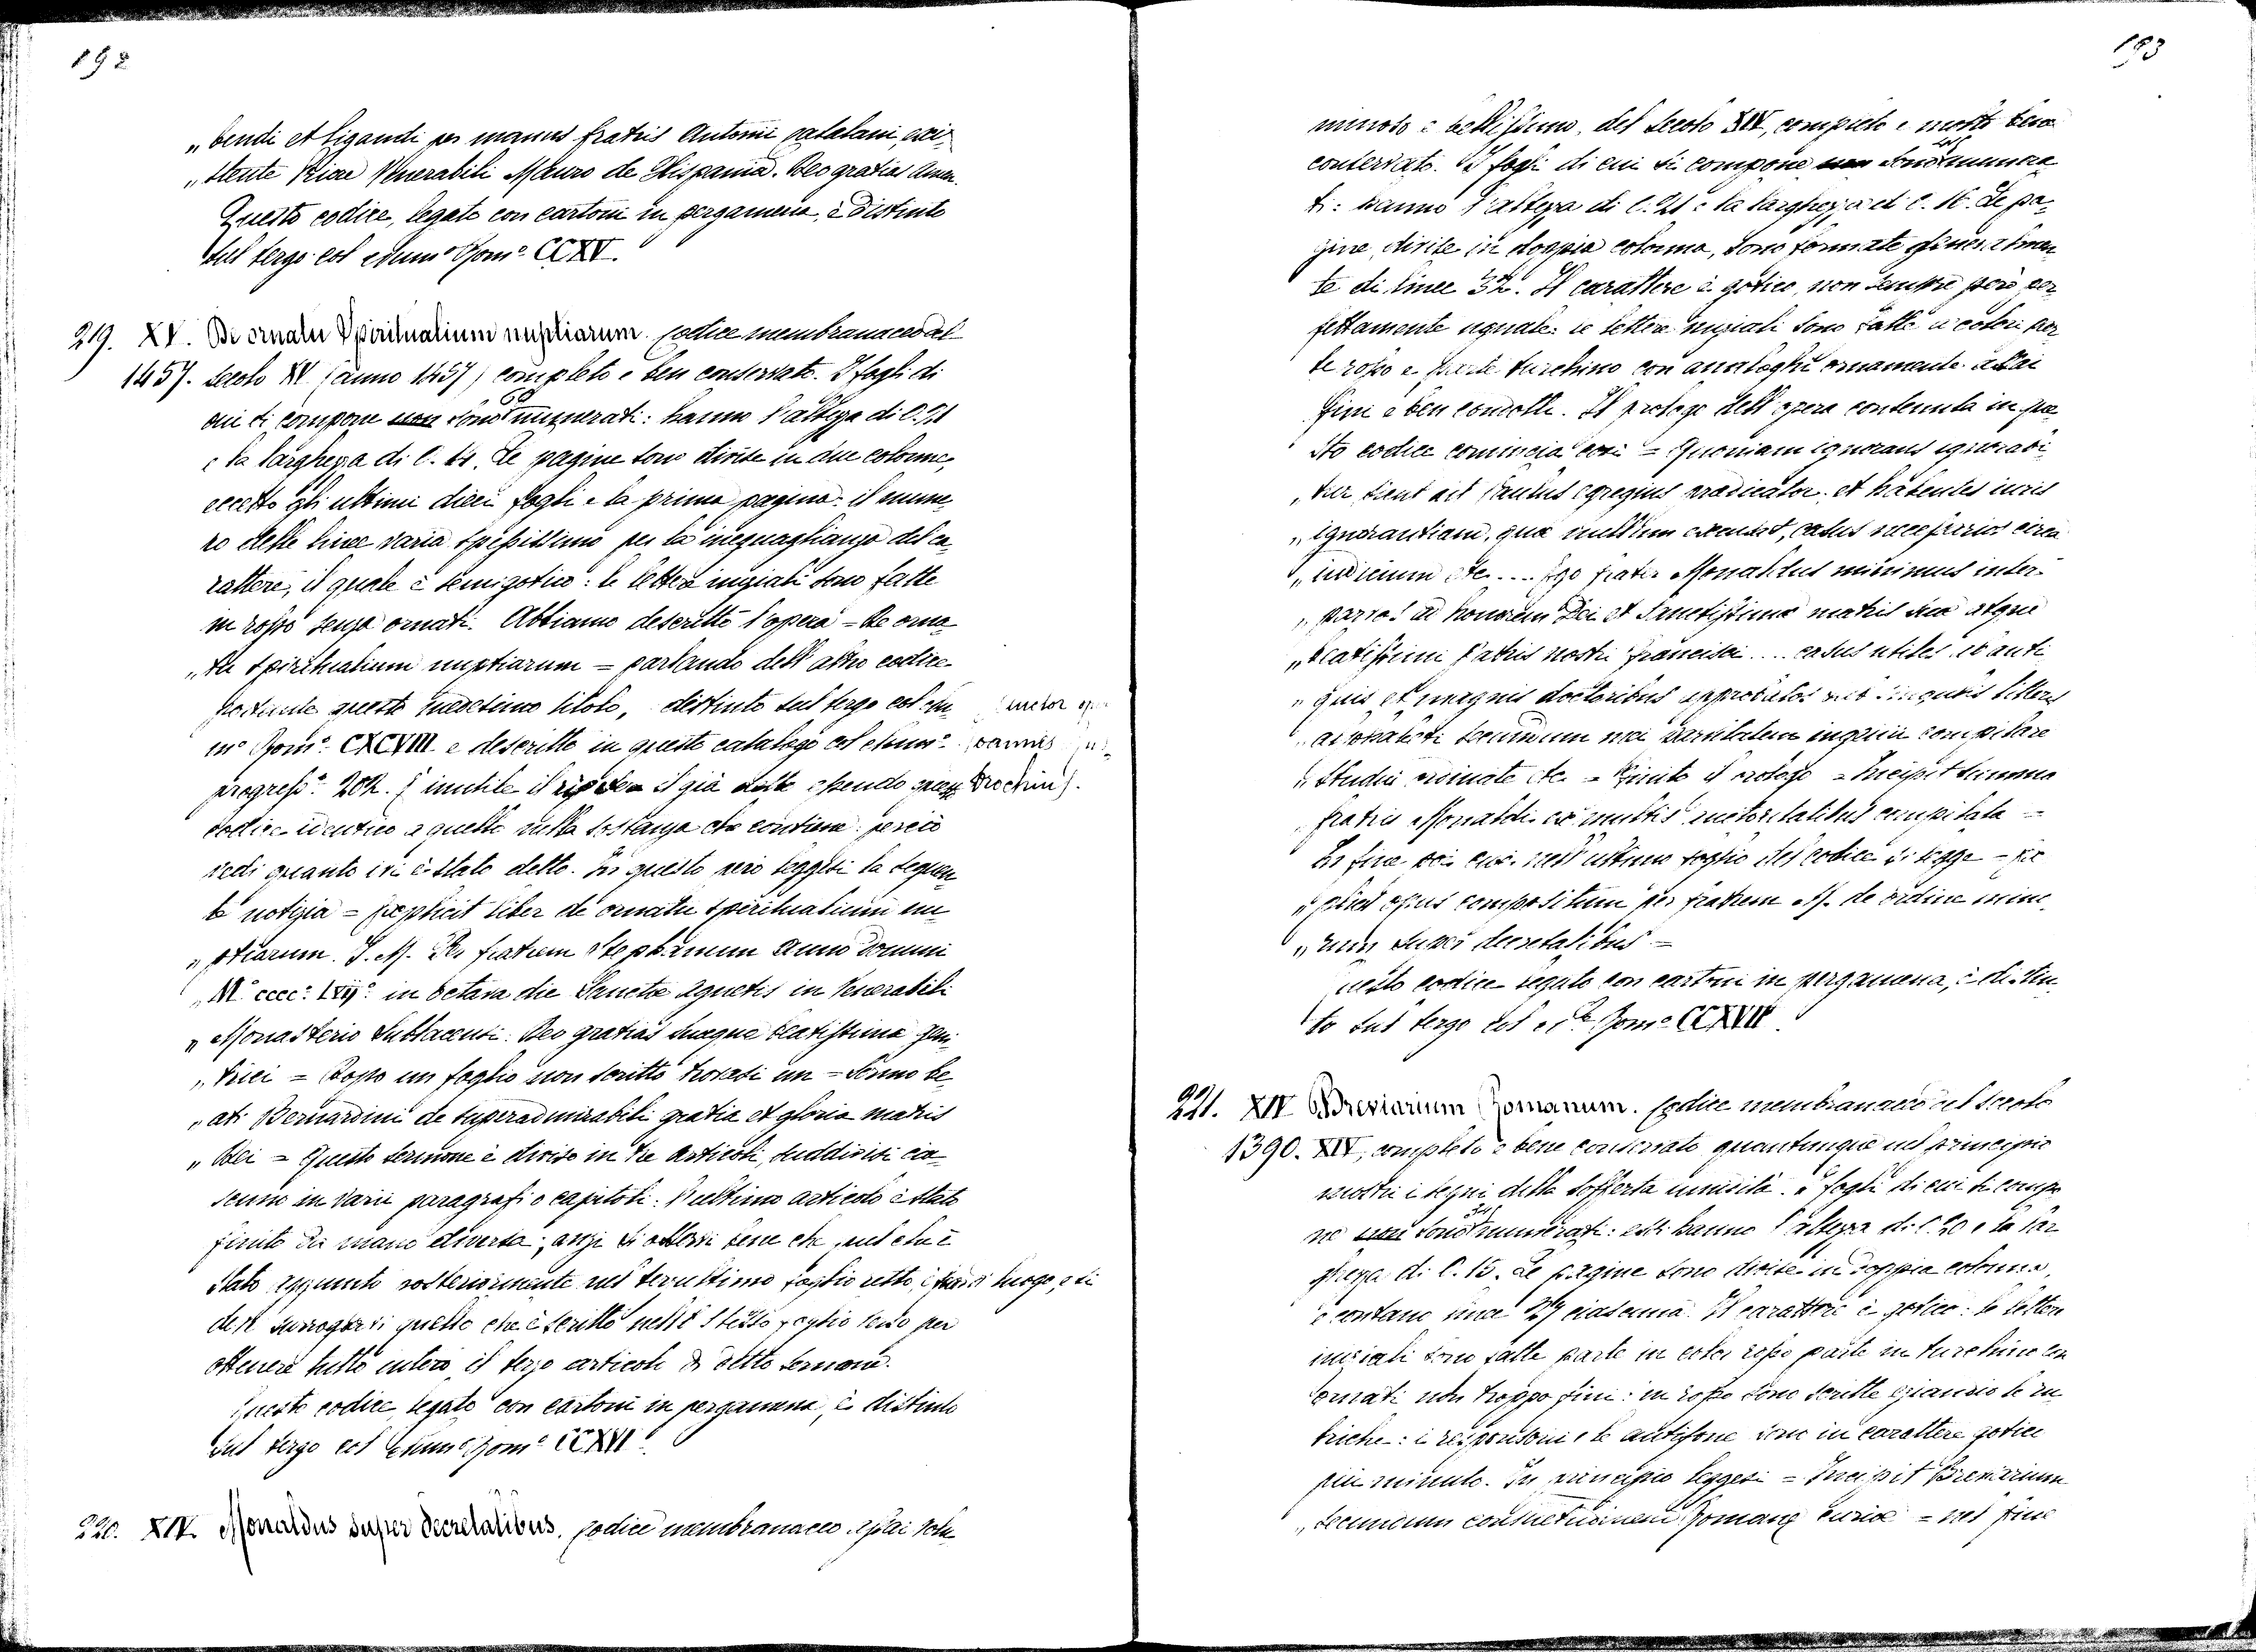 192
„bendi et ligandi per manus fratris Antonii catalani, exi-
„stente Priore Venerabili Mauro de Hispania. Deo gratias Amen.
Questo codice, legato con cartoni in pergamena, è distinto
sul tergo col num.o Rom.o CCXV.
219. XV. De ornatu Spiritualium nuptiarum. Codice membranaceo del
1457. secolo XV (anno 1457) completo e ben conservato. I fogli di
cui si compone non sono numerati: hanno l'altezza di C. 21
e la larghezza di C. 14. Le pagine sono divise in due colonne,
eccetto gli ultimi dieci fogli e la prima pagina: il nume-
ro delle linee varia spessissimo per la ineguaglianza del ca-
rattere, il quale è semigotico: le lettere iniziali sono fatte
in rosso senza ornati. Abbiamo descritto l'opera = De orna-
„tu spiritualium nuptiarum = parlando dell'altro codice
portante questo medesimo titolo, distinto sul tergo col nu-
m.o Rom.o CXCVIII e descritto in questo catalogo col num.o
progress.o 202. È inutile il ripetere il già detto essendo questo
codice identico a quello nella sostanza che contiene: perciò
vedi quanto ivi è stato detto. In questo però leggesi la seguen-
te notizia = Explicit liber de ornatu spiritualium nu-
„ptiarum. J. M. Per fratrem Stephanum anno domini
„M.o cccc.o LVij.o in octava die Sancte Agnetis in Venerabili
„Monasterio Sublacensi. Deo gratias suaque beatissime geni-
„trici = Dopo un foglio non scritto trovasi un = Sermo be-
„ati Bernardini de superadmirabili gratia et gloria matris
„Dei = Questo sermone è diviso in tre articoli, suddivisi cia-
scuno in varii paragrafi o capitoli. L'ultimo articolo è stato
finito da mano diversa; anzi si osservi bene che quel che è
stato aggiunto posteriormente nel terzultimo foglio retto, è fuori di luogo, e si
deve surrogarvi quello che è scritto nello stesso foglio verso per
ottenere tutto intero il terzo articolo di detto sermone.
Questo codice legato con cartoni in pergamena, è distinto
sul tergo col num.o Rom.o CCXVI.
220. XIV. Monaldus super decretalibus. Codice membranaceo assai volu-
Auctor
Joannis
193
minoso e bellissimo, del secolo XIV, completo e molto bene
conservato. I fogli di cui si compone non sono numera-
ti: hanno l'altezza di C. 21 e la larghezza di C. 16. Le pa-
gine, divise in doppia colonna, sono formate generalmen-
te di linee 32. Il carattere è gotico, non sempre però per-
fettamente uguale: le lettere iniziali sono fatte a colori par-
te rosso e parte turchino con analoghi ornamenti assai
fini e ben condotti. Il prologo dell'opera contenuta in que-
sto codice comincia così = Quoniam ignorans ignorabi-
„tur sicut ait Paulus egregius predicator, et habentes iuris
„ignorantiam, que nullum excusat, casus necessarios circa
„iudicium etc.... Ego frater Monaldus minimus inter
„parvos ad honorem Dei et Sanctissime matris sue atque
„beatissimi Patris nostri Francisci.... casus utiles ab anti-
„quis et magnis doctoribus approbatos sub singulis litteris
„alphabeti secundum mei parvitatem ingenii compilare
„studui ordinate etc. = Finito il prologo = Incipit summa
„fratris Monaldi ex multis auctoritatibus compilata =
In fine poi cioè nell'ultimo foglio del codice si legge = Ex-
„plicit opus compositum per fratrem M. de ordine mino-
„rum super decretalibus =
Questo codice legato con cartoni in pergamena, è distin-
to sul tergo col n.o Rom.o CCXVII.
221. XIV Breviarium Romanum. Codice membranaceo del secolo
1390. XIV, completo e bene conservato quantunque nel principio
mostri i segni della sofferta umidità. I fogli di cui si compo-
ne non sono numerati: essi hanno l'altezza di C. 20 e la lar-
ghezza di C. 15. Le pagine sono divise in doppia colonna,
e contano linee 27 ciascuna. Il carattere è gotico: le lettere
iniziali sono fatte parte in color rosso parte in turchino con
ornati non troppo fini: in rosso sono scritte eziandio le ru-
briche: i responsorii e le antifone sono in carattere gotico
più minuto. In principio leggesi = Incipit Breviarium
„secundum consuetudinem Romane curie = nel fine